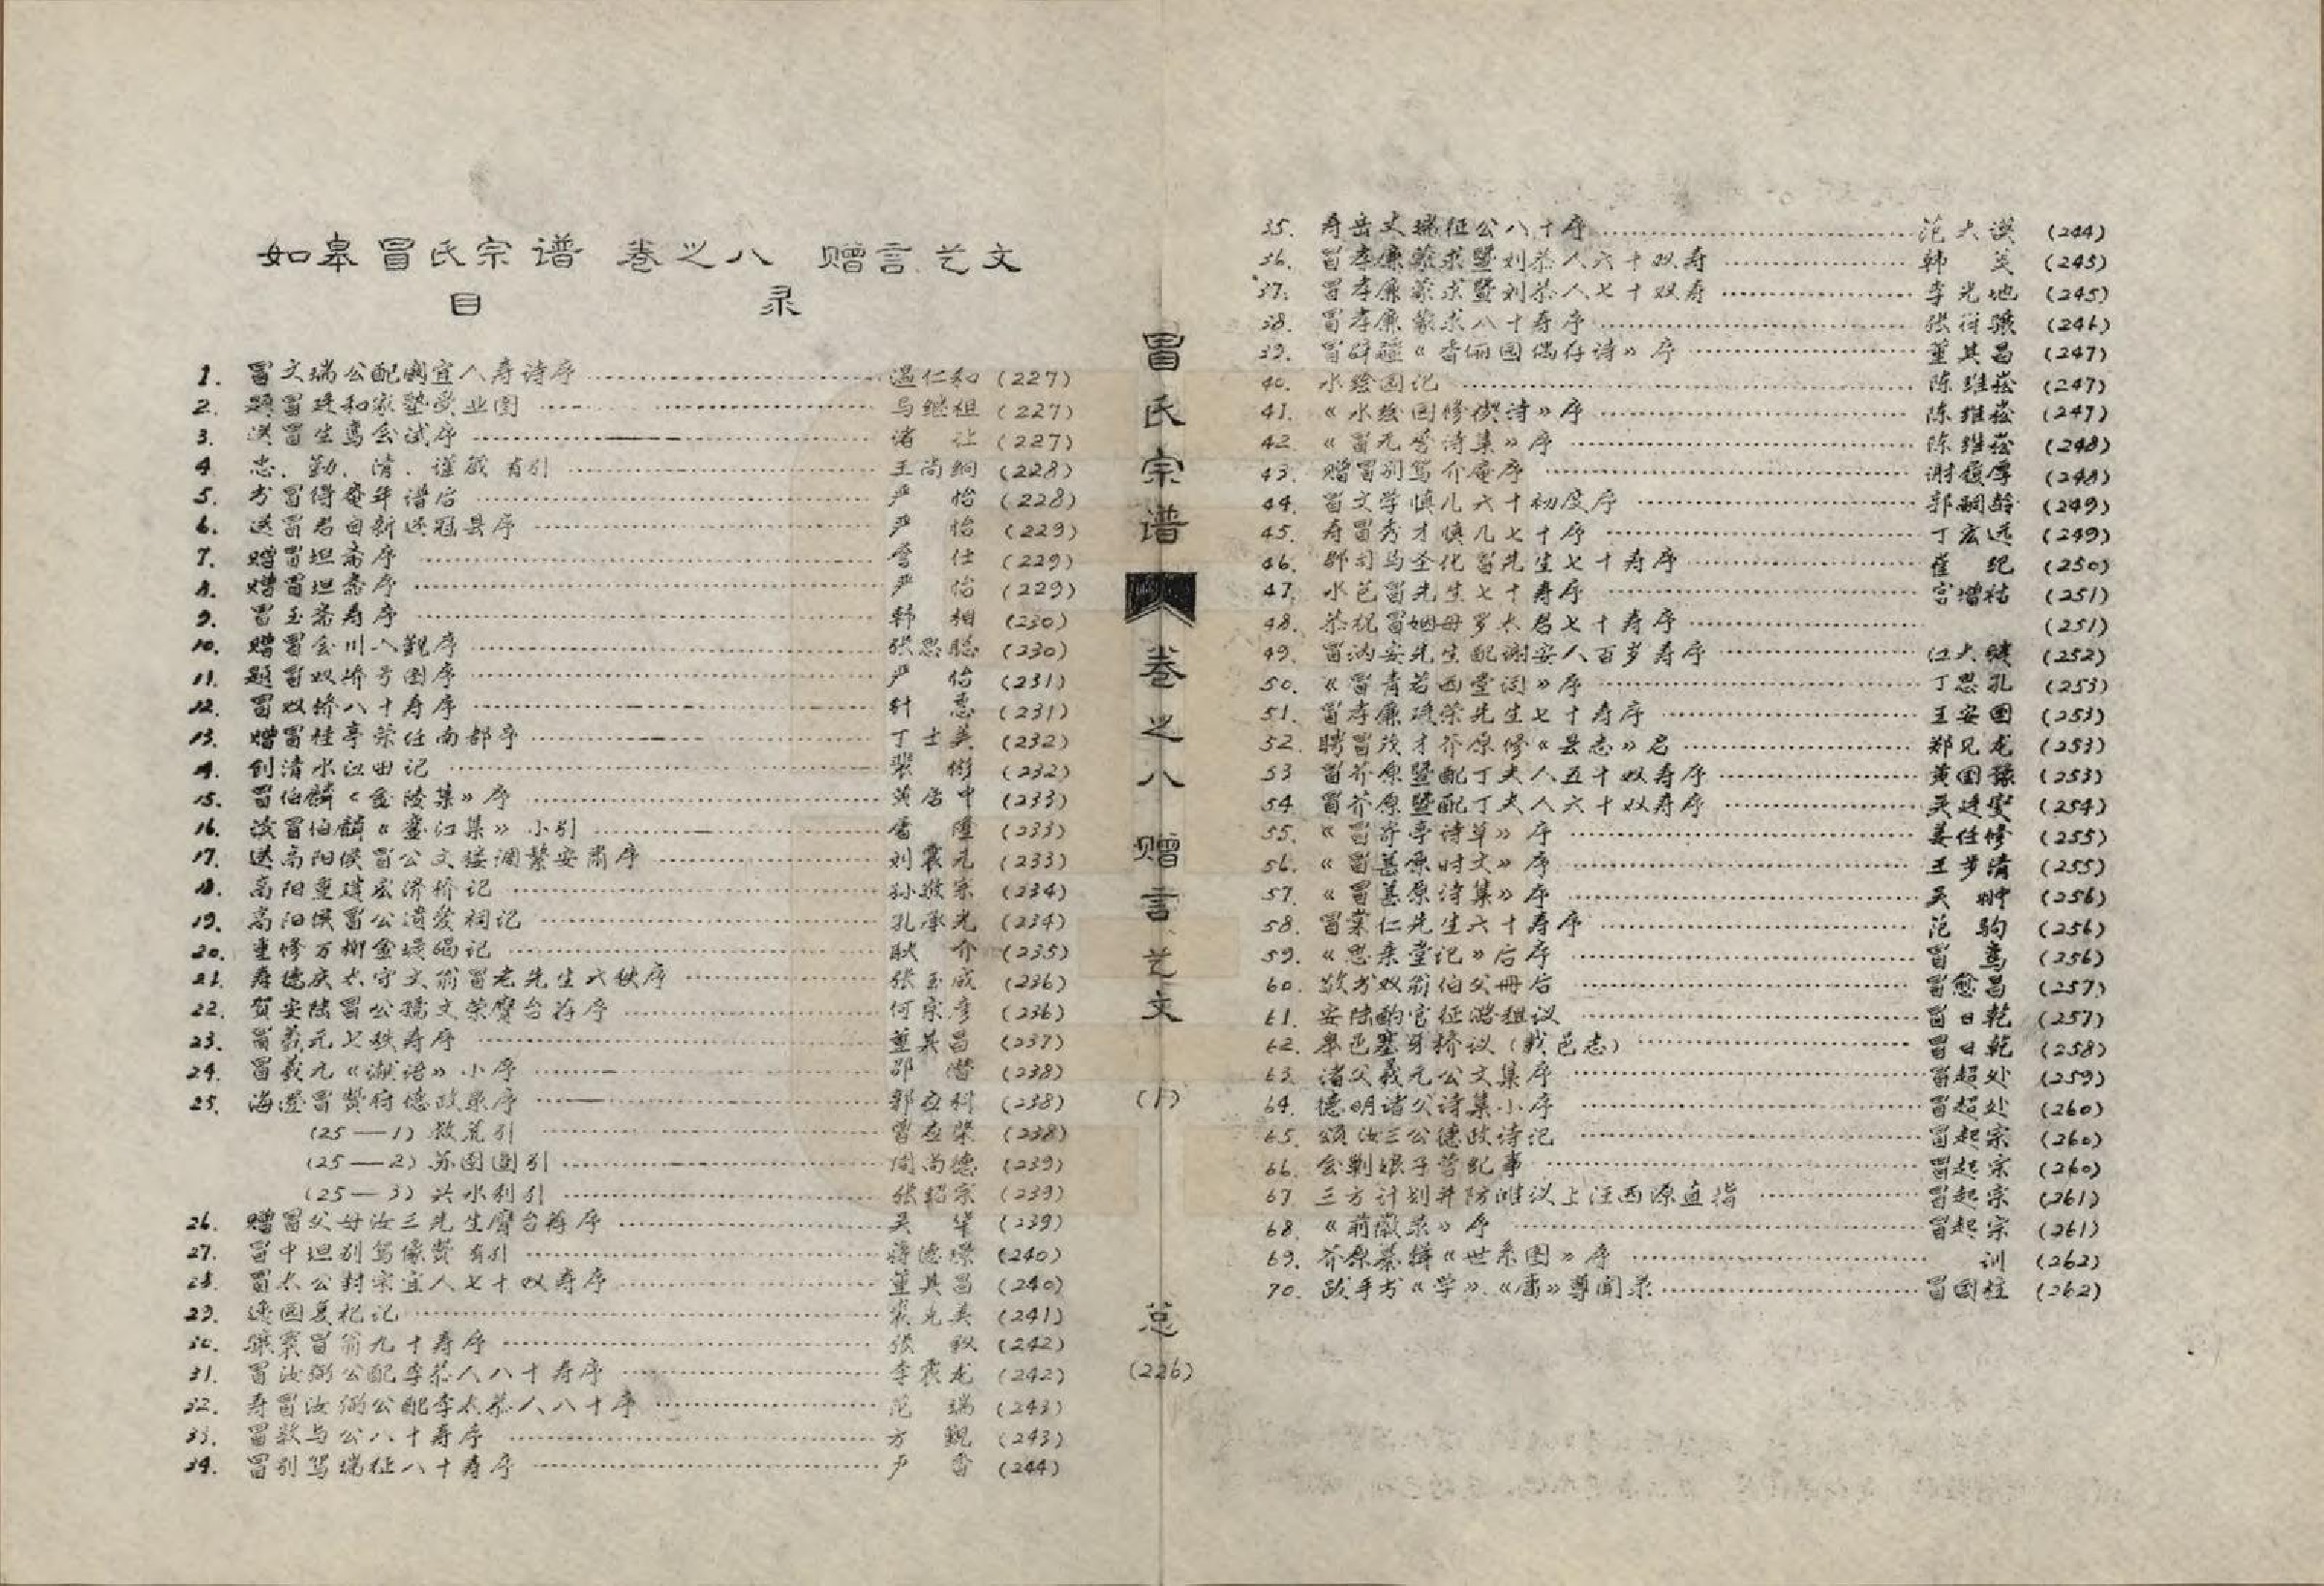 如皋冒氏宗谱 卷之八 赠言、艺文
目 录
1. 冒文瑞公配阚宜人寿诗序 温仁和 (227)
2. 题冒廷和家塾受业图 马继祖 (227)
3. 送冒生鸾会试序 诸 让 (227)
4. 忠、勤、清、谨箴 有引 王尚絅 (228)
5. 书冒得庵年谱后 严 怡 (228)
6. 送冒君自新还冠县序 严 怡 (229)
7. 赠冒坦斋序 仕 (229)
8. 赠冒坦斋序 严 怡 (229)
9. 冒玉斋寿序 韩 相 (230)
10. 赠冒会川入觐序 张思聪 (230)
11. 题冒双桥号图序 严 怡 (231)
12. 冒双桥八十寿序 针 惪 (231)
13. 赠冒桂亭荣任南都序 丁士美 (232)
14. 创清水江田记 裴 (232)
15. 冒伯麟《金陵集》序 黄居中 (233)
16. 冒伯麟《鸾江集》小引 屠 隆 (233)
17. 送高阳侯冒公文接调繁安肃序 刘震元 (233)
18. 高阳重建宏济桥记 孙敬宗 (234)
19. 高阳侯冒公清爱祠记 孔承光 (234)
20. 重修万柳金堤碣记 耿 介 (235)
21. 寿德庆太守文翁冒老先生六秩序 张玉成 (236)
22. 贺安陆冒公孺文荣膺台荐序 何宗彦 (236)
23. 冒羲元七秩寿序 董其昌 (237)
24. 冒羲元《 语》小序 邵 潜 (238)
25. 海澄冒赞府德政录序 郭应科 (238)
(25—1) 救荒引 冒应 (238)
(25—2) 苏图圄引 周尚德 (239)
(25—3) 兴水利引 张绍宗 (239)
26. 赠冒父母汝三先生膺台荐序 吴 (239)
27. 冒中坦别驾像赞 有引 蒋德璟 (240)
28. 冒太公封宗宜人七十双寿序 董其昌 (240)
29. 逸园夏杞记 裘允美 (241)
30. 冒翁九十寿序 张 (242)
31. 冒汝弼公配李恭人八十寿序 李震龙 (242)
32. 寿冒汝弼公配李太恭人八十序 范 瑞 (243)
33. 冒敦与公八十寿序 方 觐 (243)
34. 冒别驾瑞征八十寿序 严 (244)
冒氏宗谱 卷之八 赠言、艺文 (1) 总 (226)
35. 寿岳丈瑞征公八十序 范大 (244)
36. 冒孝廉蒙求暨刘恭人六十双寿 韩 菼 (245)
37. 冒孝廉蒙求暨刘恭人七十双寿 李光地 (245)
38. 冒孝廉蒙求八十寿序 张符骧 (246)
39. 冒辟疆《香俪园偶存诗》序 董其昌 (247)
40. 水绘园记 陈维崧 (247)
41. 《水绘园修禊诗》序 陈维崧 (247)
42. 《冒无誉诗集》序 陈维崧 (248)
43. 赠冒别驾介庵序 谢履厚 (248)
44. 冒文学慎几六十初度序 郭嗣龄 (249)
45. 寿冒秀才慎几七十序 丁宏远 (249)
46. 郡司马圣化冒先生七十寿序 崔 纪 (250)
47. 水芑冒先生七十寿序 宫增祜 (251)
48. 恭祝冒姻母罗太君七十寿序 (251)
49. 冒泐安先生配谢安人百岁寿序 江大键 (252)
50. 《冒青若西堂词》序 丁思孔 (253)
51. 冒孝廉 荣先生七十寿序 王安国 (253)
52. 聘冒茂才芥原修《县志》启 郑见龙 (253)
53 冒芥原暨配丁夫人五十双寿序 黄国 (253)
54. 冒芥原暨配丁夫人六十双寿序 吴廷 (254)
55. 《冒寄亭诗草》序 姜任修 (255)
56. 《冒葚原时文》序 王步清 (255)
57. 《冒葚原诗集》序 吴 翀 (256)
58. 冒业仁先生六十寿序 范 驹 (256)
59. 《思来堂记》后序 冒 鸾 (256)
60. 敬书双翁伯父册后 冒愈昌 (257)
61. 安陆酌官征潞租议 冒日乾 (257)
62. 皋邑塞牙桥议(载邑志) 冒日乾 (258)
63. 诸父羲元公文集序 冒超处 (259)
64. 德明诸父诗集小序 冒超处 (260)
65. 颂汝三公德政诗记 冒起宗 (260)
66. 会剿娘子营纪事 冒起宗 (260)
67. 三方计划并防 议上汪西源直指 冒起宗 (261)
68. 《前徽录》序 冒起宗 (261)
69. 芥原纂辑《世系图》序 训 (262)
70. 跋手书《学》、《庸》尊闻录 冒国柱 (262)